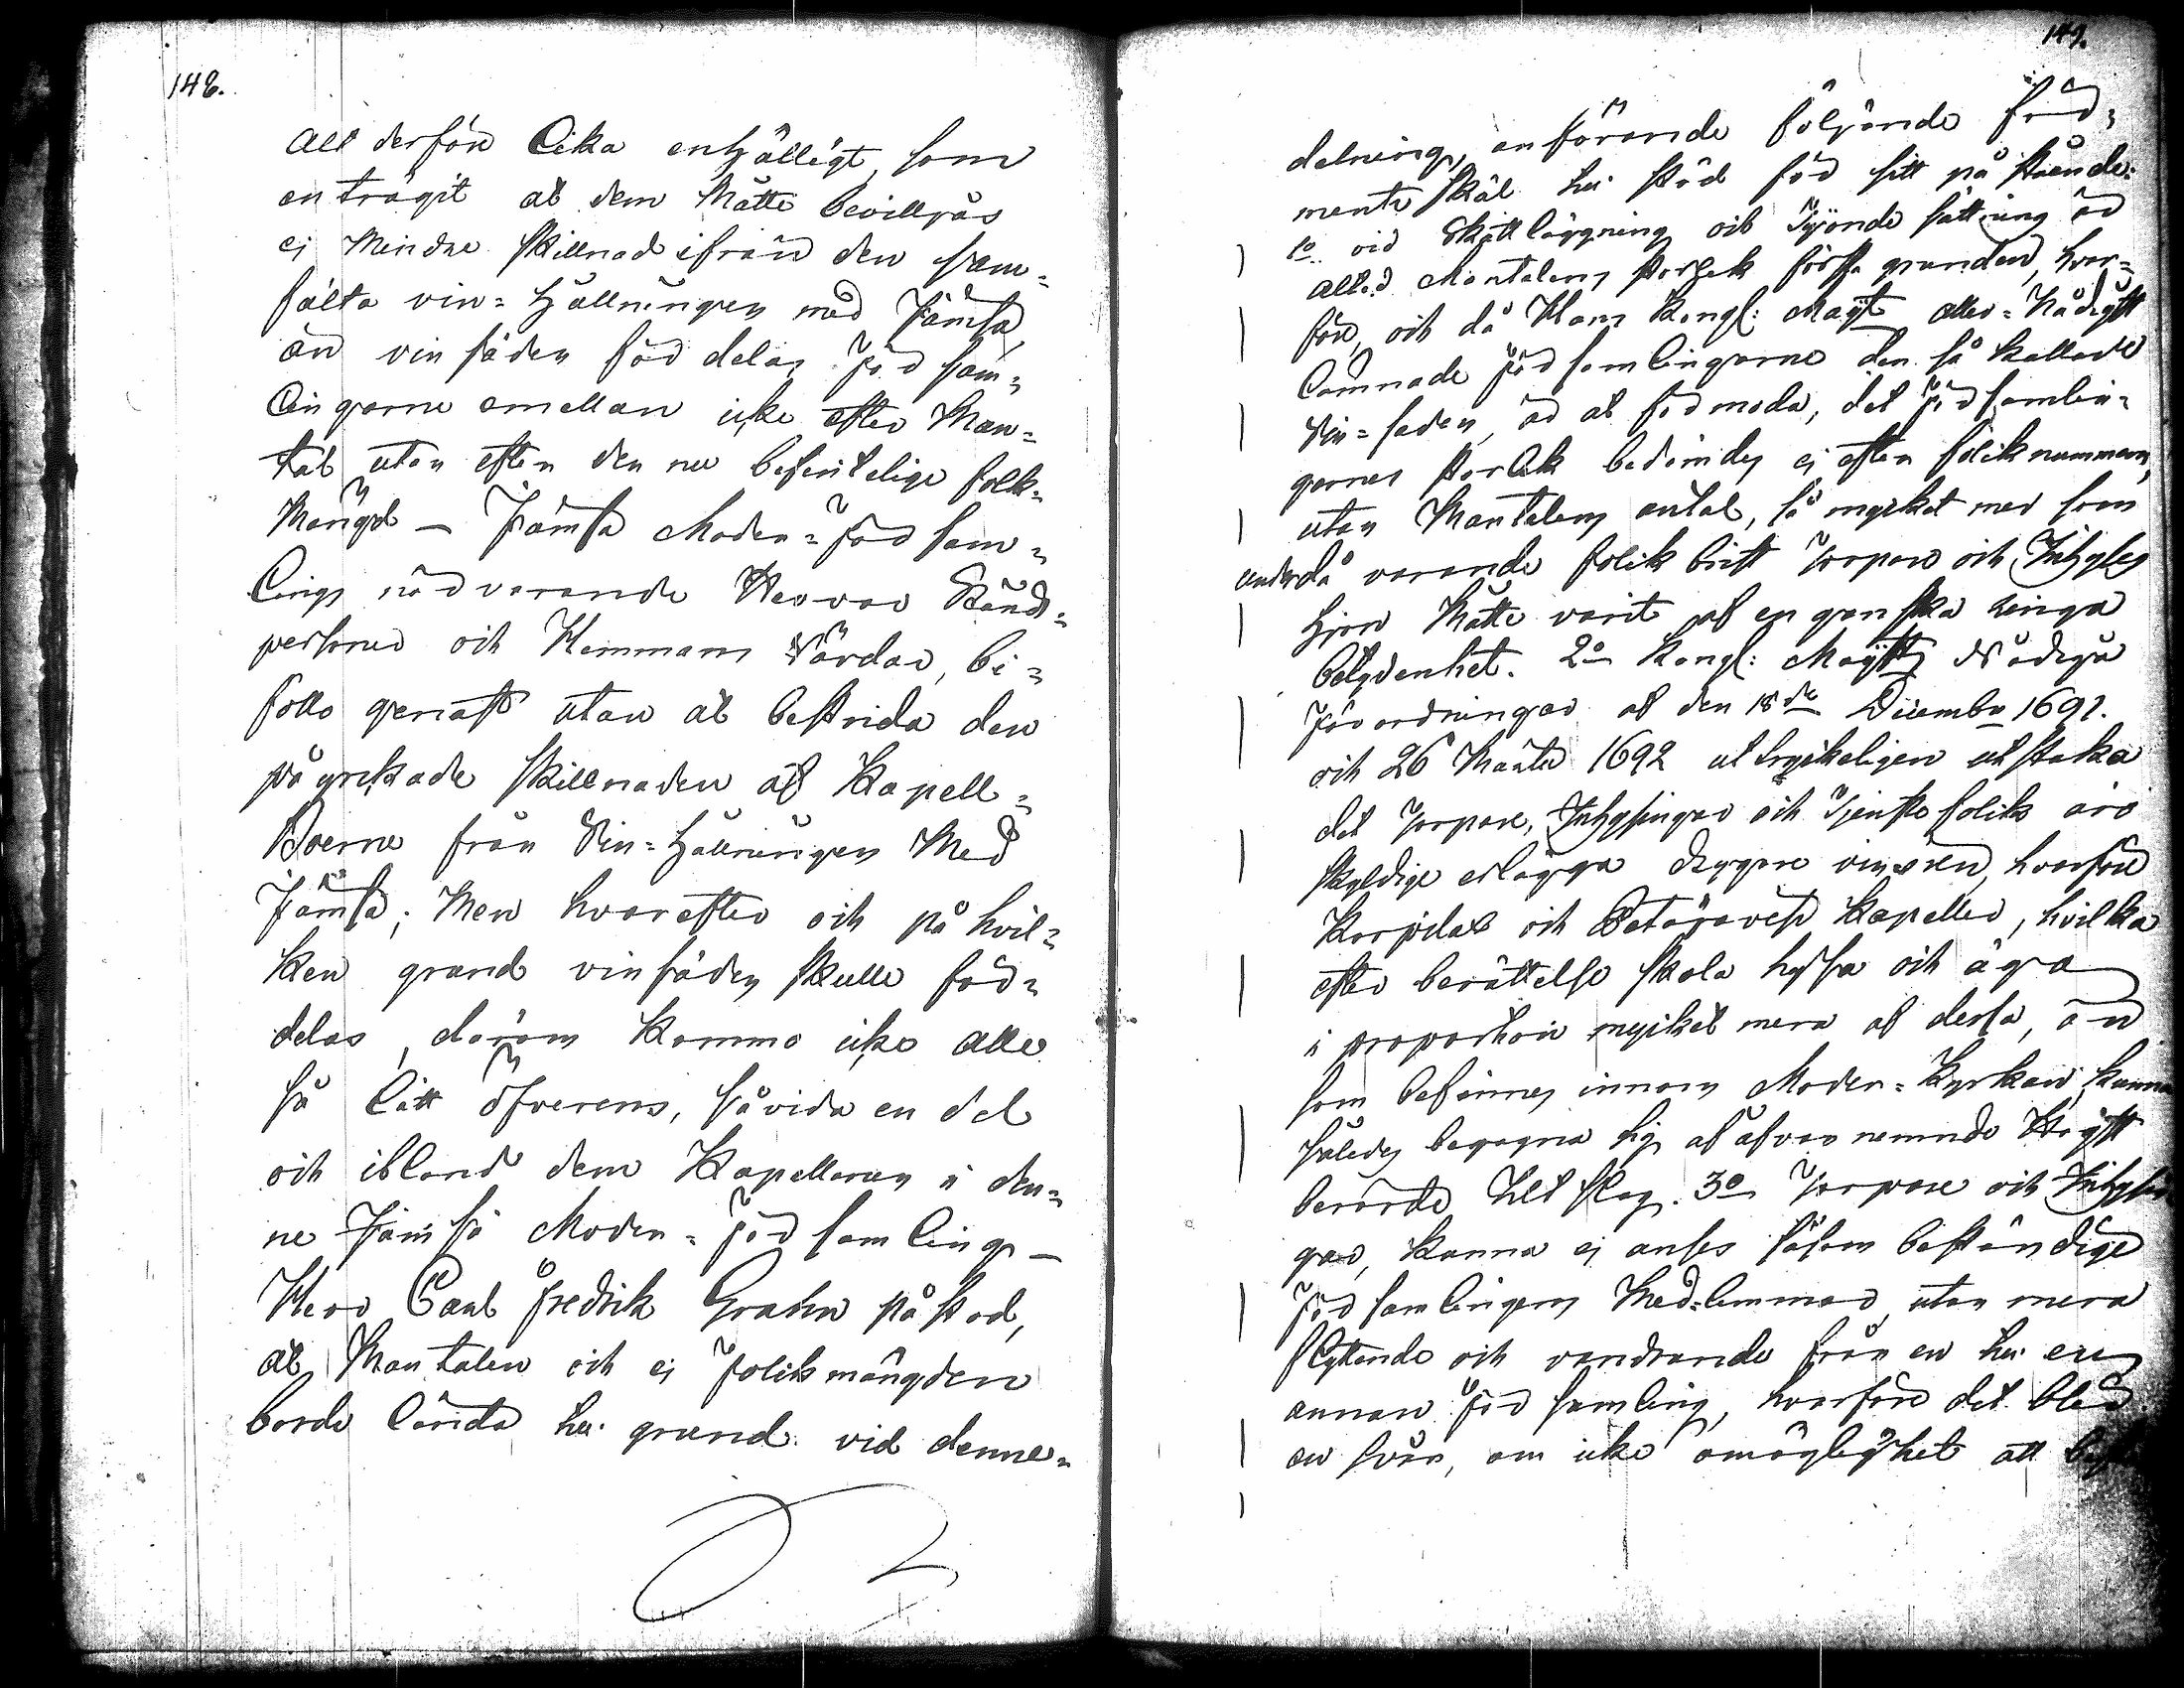 148.
All derföre lika enhälligt som
entrågit at dem måtte bevilljas
ej mindre skillnad ifrån den sam-
fälta vin-hållningen med Jämsä
än vin säden fördelas För sam-
lingarne emellan icke efter Man-
tal utan efter den nu befintelige folk-
Mängd — Jämsä Moder-För sam-
lings närvarande Herrar Stånds-
personer och Hemmans Värdar, bi-
föllo genast utan at bestrida den
påyrckade skillnaden af Kapell-
Boerne från Vin-hållningen Med
Jämsä; Men hvarefter och på hvil-
ken grund vinsäden skulle för-
delas, därom kommo icke alle
så lätt öfverens, såvida en del
och ibland dem Kapellanen i den-
ne Jämsä Moder-För samling —
Herr Carl Fredrik Grahn påstod,
at Mantalen och ej Folkmängden
borde lända till grund vid denne-
149.
delning, anförande följande för-
mente skäl till stöd för sitt påstående:
1o vid Skattläggning och Tijonde sättning är
alltid Mantalens storlek första grunden, hvar-
före, och då Hans Kongl: Maijt aller-Nådigst
lämnade Församlingarne den så kallade
Vin-saden, är at förmoda, det Församlin-
garnes storlek bedömdes ej efter folknummern,
utan Mantalens antal, så myckit mer som
under då varande folkbrist Torpare och Inhyses
Hjon Måtte varit af en ganska ringa
betydenhet. 2o Kongl: Maijtts Nådiga
Förordningar af den 18de December 1691.
och 26 Martii 1692 uttryckeligen utstaka
det Torpare, Inhysingar och Tjenstefolk äro
skyldige erlägga drygare vinören, hvarföre
Korpilax och Petäjävesi Kapeller, hvilka
efter berättelse skola hysa och äga
i proportion myckit mera af dessa, än
som befinnes innom Moder-Kyrkan, kunna
således begagna sig af ofvan nemnde Högst
berörde tillslag. 3o Torpare och Inhysin
gar, kunna ej anses såsom beständige
Församlingens Med-lemmar, utan mera
flyttande och vandrande från en till en
annan För samling, hvarföre det blir
en svår, om icke omöglighet att